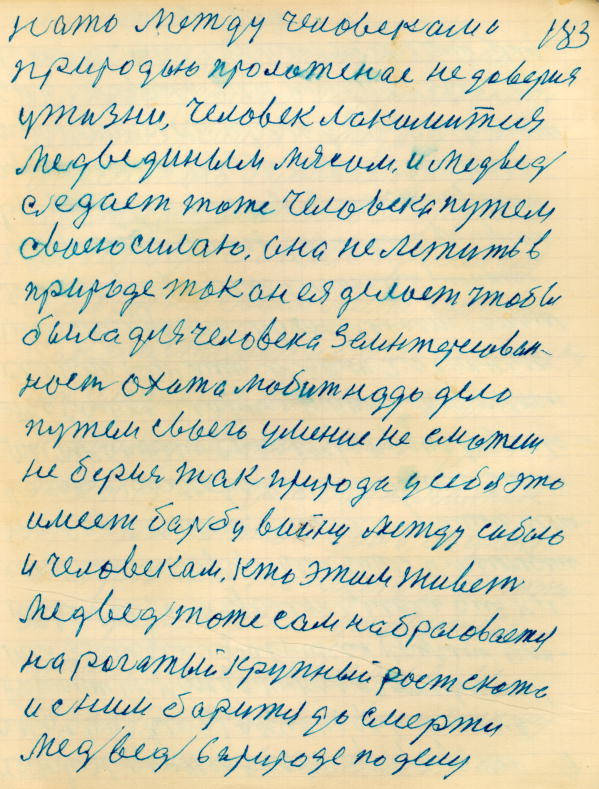 нато между человекам и 183
природью проложеная не доверия
ужизни, человек лакомится
медвединым мясом, и медвед
съедает тоже человека путем
своею силаю, она не летить в
природе так он ея делает чтобы
была для человека Заинтересован-
ност охота любит надо дело
путем своего умение не сможеш
не берия так природа у себя это
имеет барбу вайну между собою
и человекам, кто этим живет
медвед тоже сам набрасовается
на рогатый крупный рост скота
и сним барится до смерти
медвед в природе по делу